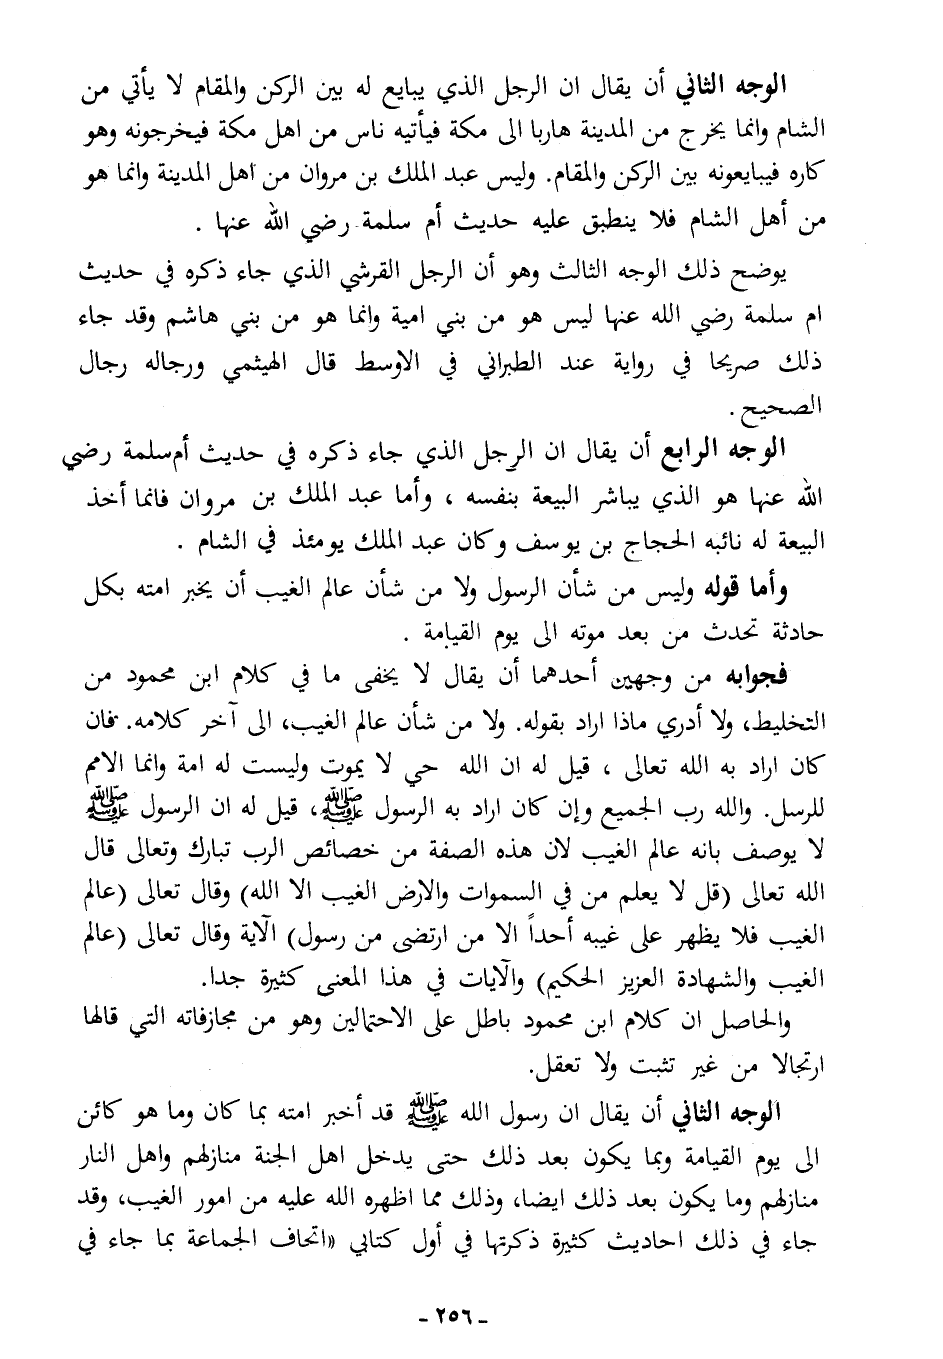 الوجه الثاني أن يقال ان الرجل الذي يبايع له بين الركن والمقام لا يأتي من
الشام وانما يخرج من المدينة هاربا الى مكة فيأتيه ناس من اهل مكة فيخرجونه وهو
كاره فيبايعونه بين الركن والمقام. وليس عبد الملك بن مروان من اهل المدينة وانما هو
من أهل الشام فلا ينطبق عليه حديث أم سلمة رضي الله عنها .
يوضح ذلك الوجه الثالث وهو أن الرجل القرشي الذي جاء ذكره في حديث
ام سلمة رضي الله عنها ليس هو من بني امية وانما هو من بني هاشم وقد جاء
ذلك صريحا في رواية عند الطبراني في الاوسط قال الهيثمي ورجاله رجال
الصحيح.
الوجه الرابع أن يقال ان الرجل الذي جاء ذكره في حديث أم سلمة رضي
الله عنها هو الذي يباشر البيعة بنفسه ، وأما عبد الملك بن مروان فانما أخذ
البيعة له نائبه الحجاج بن يوسف وكان عبد الملك يومئذ في الشام .
وأما قوله وليس من شأن الرسول ولا من شأن عالم الغيب أن يخبر امته بكل
حادثة تحدث من بعد موته الى يوم القيامة .
فجوابه من وجهين أحدهما أن يقال لا يخفى ما في كلام ابن محمود من
التخليط، ولا أدري ماذا اراد بقوله. ولا من شأن عالم الغيب، الى آخر كلامه. فان
كان اراد به الله تعالى ، قيل له ان الله حي لا يموت وليست له امة وانما الامم
للرسل. والله رب الجميع وإن كان اراد به الرسول ﷺ، قيل له ان الرسول ﷺ
لا يوصف بانه عالم الغيب لان هذه الصفة من خصائص الرب تبارك وتعالى قال
الله تعالى (قل لا يعلم من في السموات والارض الغيب الا الله) وقال تعالى (عالم
الغيب فلا يظهر على غيبه أحداً الا من ارتضى من رسول) الآية وقال تعالى (عالم
الغيب والشهادة العزيز الحكيم) والآيات في هذا المعنى كثيرة جدا.
والحاصل ان كلام ابن محمود باطل على الاحتمالين وهو من مجازفاته التي قالها
ارتجالا من غير تثبت ولا تعقل.
الوجه الثاني أن يقال ان رسول الله ﷺ قد أخبر امته بما كان وما هو كائن
الى يوم القيامة وبما يكون بعد ذلك حتى يدخل اهل الجنة منازلهم واهل النار
منازلهم وما يكون بعد ذلك ايضا، وذلك مما اظهره الله عليه من امور الغيب، وقد
جاء في ذلك احاديث كثيرة ذكرتها في أول كتابي «اتحاف الجماعة بما جاء في
- ٢٥٦ -